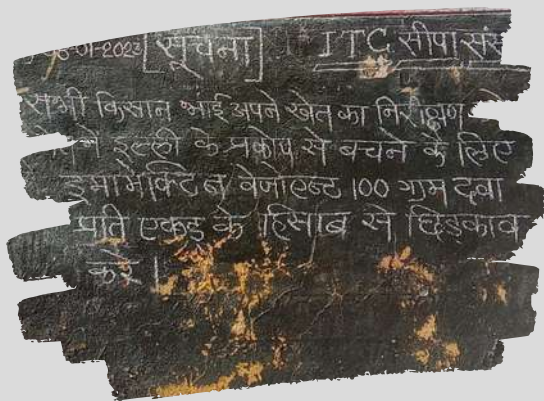 -01-2023 [सूचना] ITC सीपा संस
सभी किसान भाई अपने खेत का निरीक्षण
इल्ली के प्रकोप से बचने के लिए
इमामेक्टिन वेजोएन्ट 100 ग्राम दवा
प्रति एकड़ के हिसाब से छिड़काव
करे।